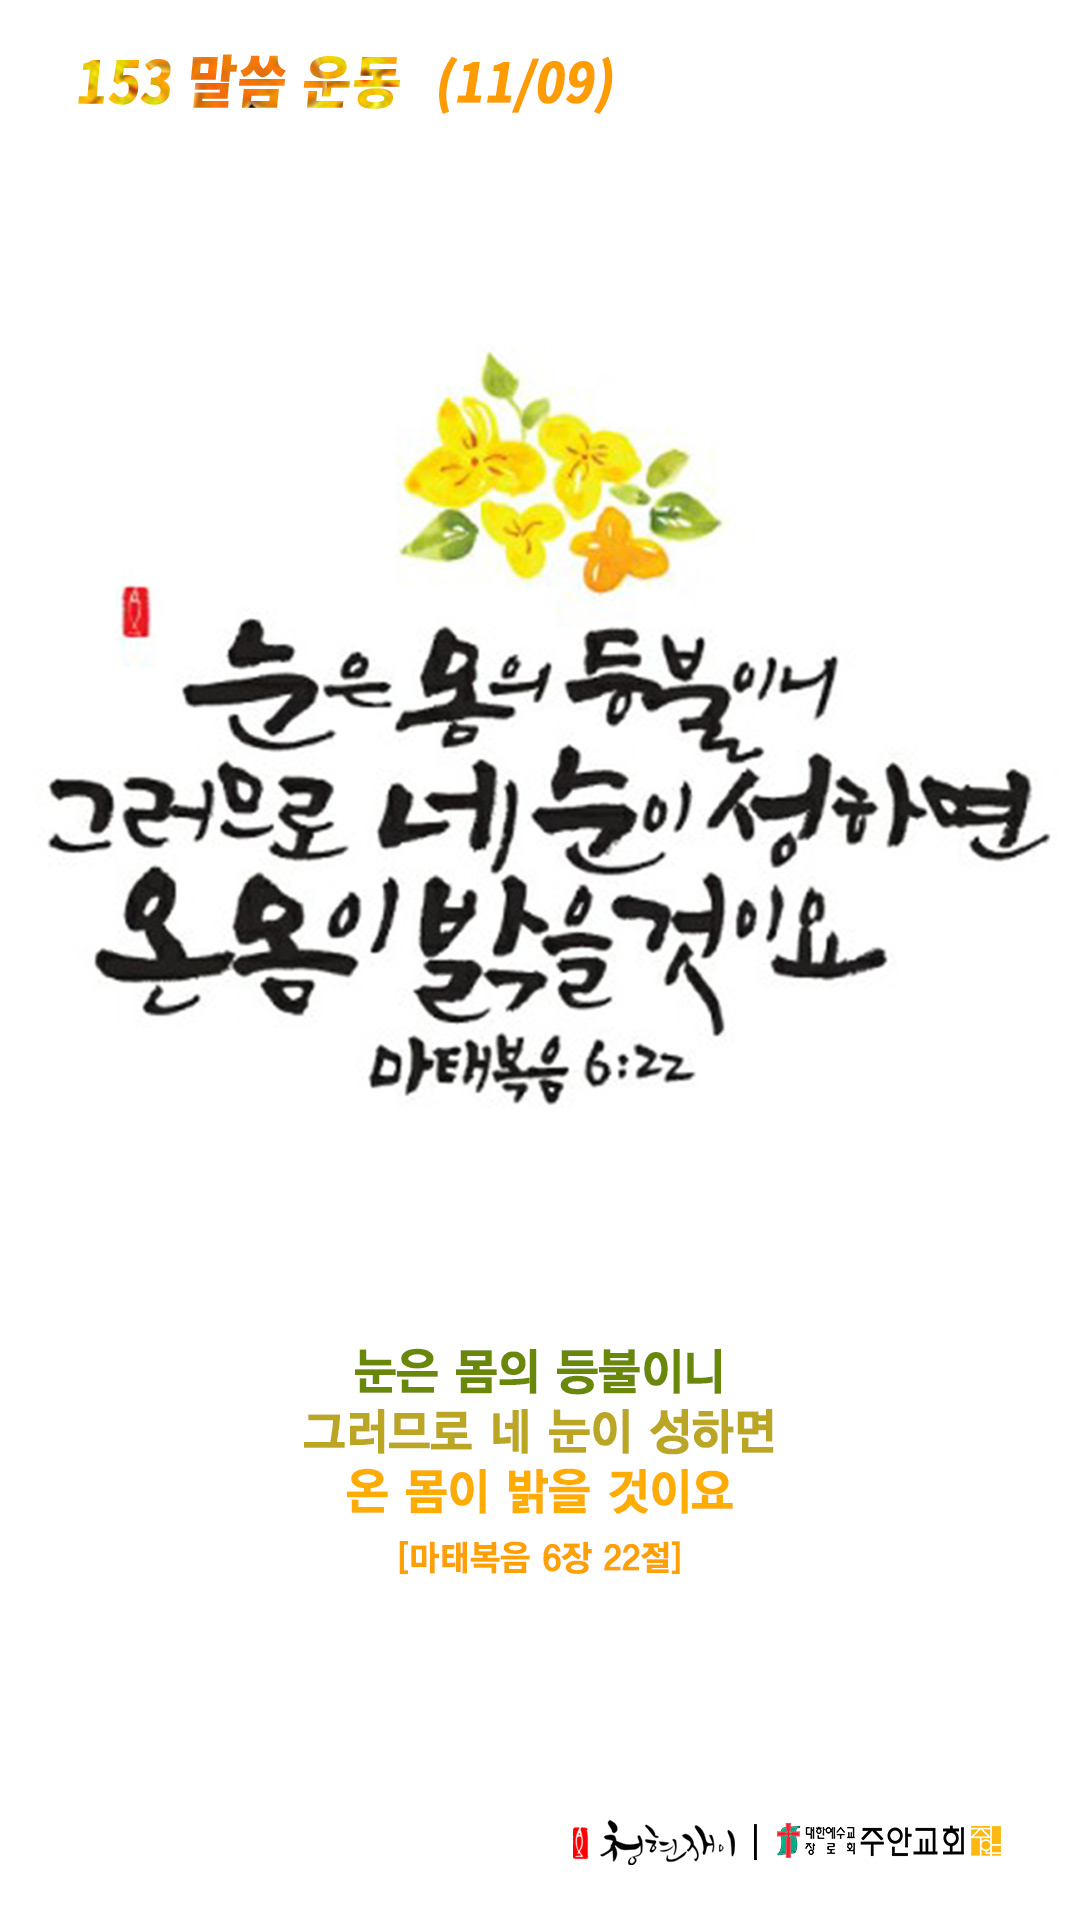 153 말씀 운동 (11/09)
눈은 몸의 등불이니
그러므로 네 눈이 성하면
온 몸이 밝을 것이요
마태복음 6:22
눈은 몸의 등불이니
그러므로 네 눈이 성하면
온 몸이 밝을 것이요
[마태복음 6장 22절]
청현재이 | 대한예수교 장로회 주안교회 주안